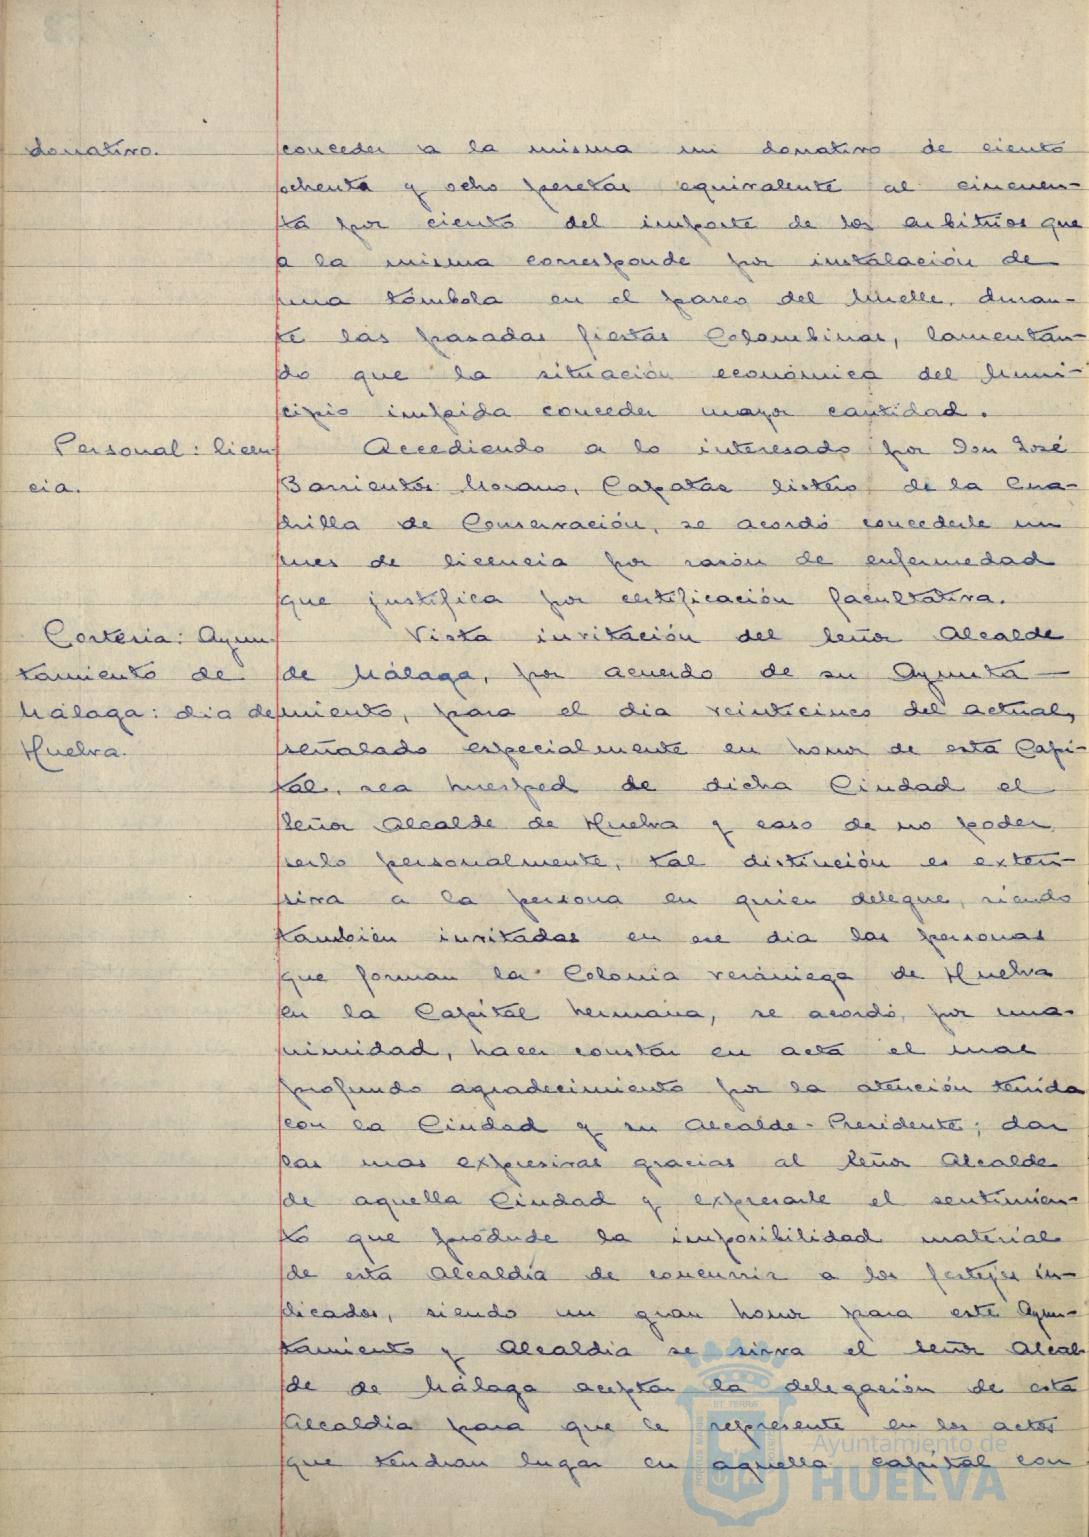 donativo.
conceder a la misma un donativo de ciento
ochenta y ocho pesetas equivalente al cincuen-
ta por ciento del importe de los arbitrios que
a la misma corresponde por instalación de
una tómbola en el paseo del Muelle, duran-
te las pasadas fiestas Colombinas, lamentan-
do que la situación económica del Muni-
cipio impida conceder mayor cantidad.
Personal: licen
cia.
Accediendo a lo interesado por Don José
Barrientos Morano, Capataz listero de la Cua-
drilla de Conservación, se acordó concederle un
mes de licencia por razón de enfermedad
que justifica por certificación facultativa.
Cortesia: Ayun-
tamiento de
Málaga: dia de
Huelva.
Vista invitación del Señor Alcalde
de Málaga, por acuerdo de su Ayunta-
miento, para el dia veinticinco del actual,
señalado especialmente en honor de esta Capi-
tal, sea huesped de dicha Ciudad el
Señor Alcalde de Huelva y caso de no poder
serlo personalmente, tal distinción es exten-
siva a la persona en quien delegue, siendo
también invitadas en ese dia las personas
que forman la Colonia veraniega de Huelva
en la Capital hermana, se acordó, por una-
nimidad, hacer constar en acta el mas
profundo agradecimiento por la atención tenida
con la Ciudad y su Alcalde-Presidente; dar
las mas expresivas gracias al Señor Alcalde
de aquella Ciudad y expresarle el sentimien-
to que produce la imposibilidad material
de esta Alcaldía de concurrir a los festejos in-
dicados, siendo un gran honor para este Ayun-
tamiento y Alcaldia se sirva el Señor Alcal-
de de Málaga aceptar la delegación de esta
Alcaldia para que le represente en los actos
que tendran lugar en aquella capital con
Ayuntamiento de
HUELVA